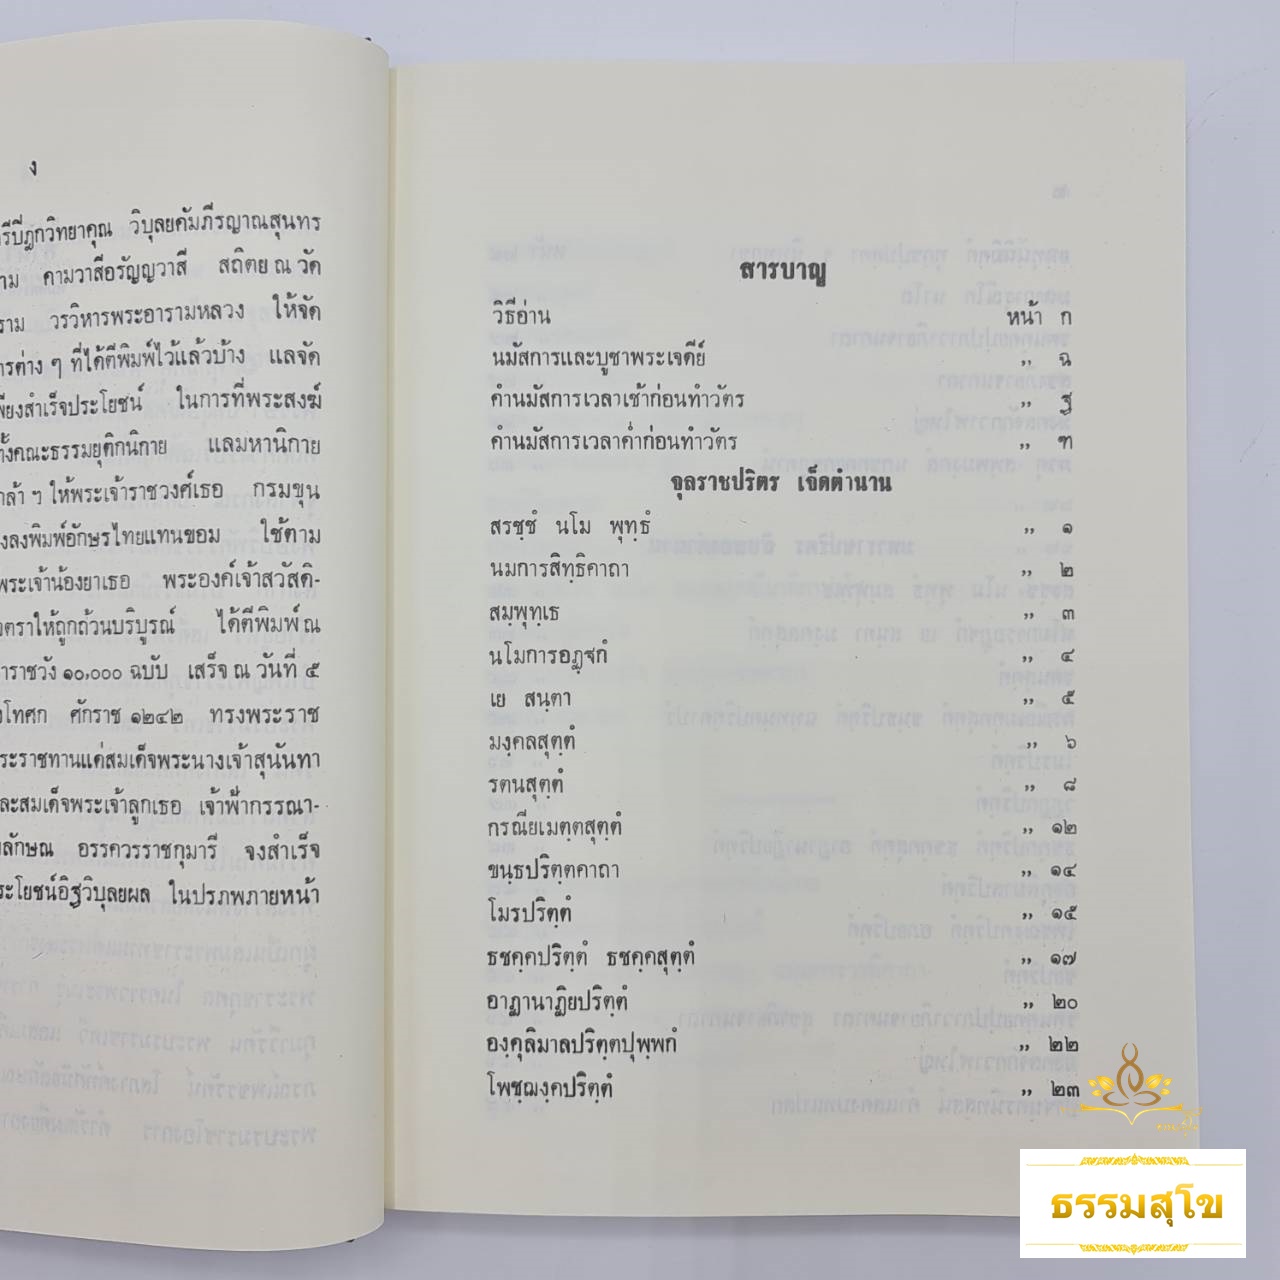 ง
วิทยาคุณ วิบุลยคัมภีรญาณสุนทร
คามวาสีอรัญญวาสี สถิตย ณ วัด
วรวิหารพระอารามหลวง ให้จัด
การต่าง ๆ ที่ได้ตีพิมพ์ไว้แล้วบ้าง แลจัด
เพียงสำเร็จประโยชน์ ในการที่พระสงฆ์
ทั้งคณะธรรมยุติกนิกาย แลมหานิกาย
ล้า ฯ ให้พระเจ้าราชวงศ์เธอ กรมขุน
ลงพิมพ์อักษรไทยแทนขอม ใช้ตาม
พระเจ้าน้องยาเธอ พระองค์เจ้าสวัสดิ-
ตราให้ถูกถ้วนบริบูรณ์ ได้ตีพิมพ์ ณ
ราชวัง ๑๐,๐๐๐ ฉบับ เสร็จ ณ วันที่ ๕
โทศก ศักราช ๑๒๔๒ ทรงพระราช
ระราชทานแด่สมเด็จพระนางเจ้าสุนันทา
ละสมเด็จพระเจ้าลูกเธอ เจ้าฟ้ากรรณา-
ลักษณ อรรควรราชกุมารี จงสำเร็จ
ระโยชน์อิฐวิบุลยผล ในปรภพภายหน้า
สารบาญ
วิธีอ่าน หน้า ก
นมัสการและบูชาพระเจดีย์ ,, ฉ
คำนมัสการเวลาเช้าก่อนทำวัตร ,, ฐ
คำนมัสการเวลาค่ำก่อนทำวัตร ,, ฑ
จุลราชปริตร เจ็ดตำนาน
สรชฺชํ นโม พุทฺธํ ,, ๑
นมการสิทฺธิคาถา ,, ๒
สมฺพุทฺเธ ,, ๓
นโมการอฏฺฐกํ ,, ๔
เย สนฺตา ,, ๕
มงฺคลสุตฺตํ ,, ๖
รตนสุตฺตํ ,, ๘
กรณียเมตฺตสุตฺตํ ,, ๑๒
ขนฺธปริตฺตคาถา ,, ๑๔
โมรปริตฺตํ ,, ๑๕
ธชคฺคปริตฺตํ ธชคฺคสุตฺตํ ,, ๑๗
อาฏานาฏิยปริตฺตํ ,, ๒๐
องฺคุลิมาลปริตฺตปุพฺพกํ ,, ๒๒
โพชฺฌงฺคปริตฺตํ ,, ๒๓
ธรรมสุโข